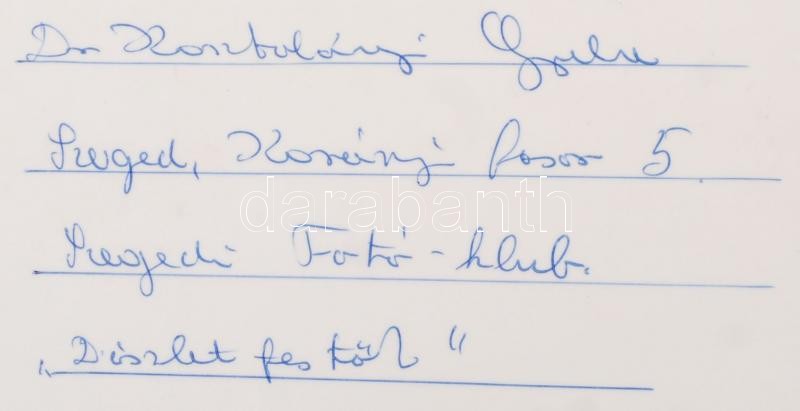 Dr Kosztolányi Gyula
Szeged, Korányi fasor 5.
Szegedi Fotó-klub.
"Díszlet festők"
darabanth